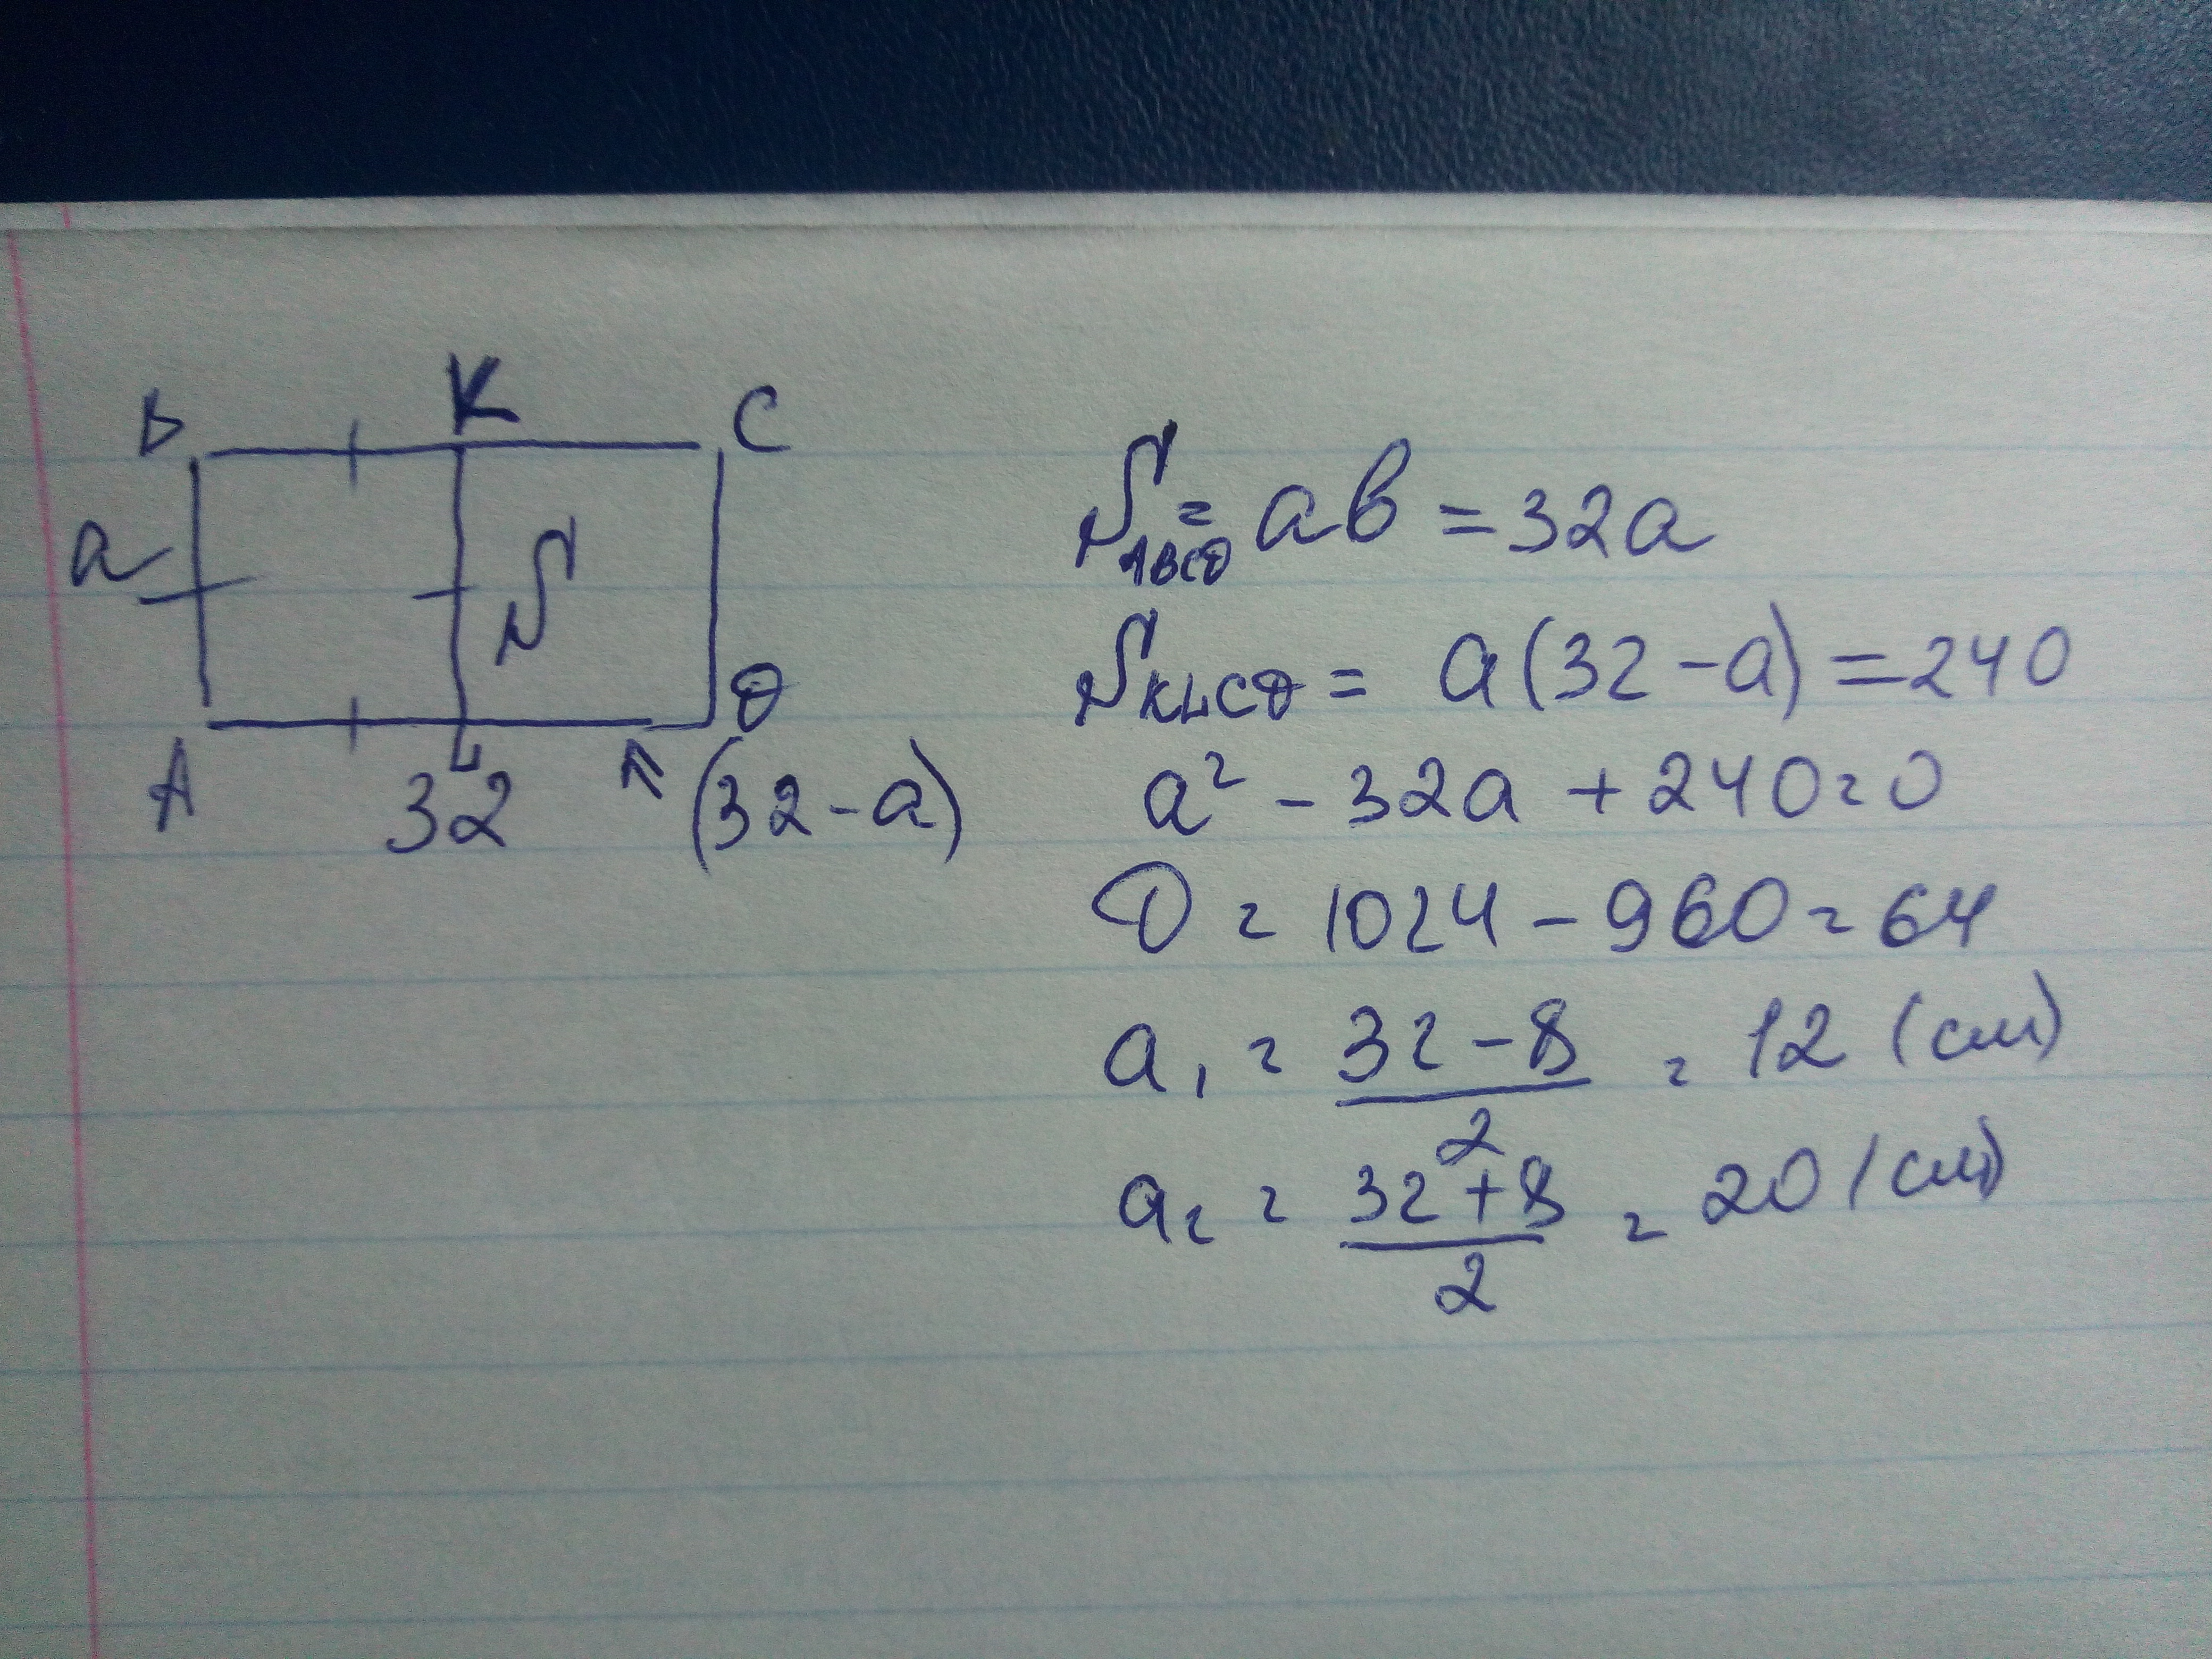 B K C
a S
A L D
32 (32-a)
S_ABCD = ab = 32a
S_KLCD = a(32-a) = 240
a² - 32a + 240 = 0
D = 1024 - 960 = 64
a₁ = (32-8)/2 = 12 (см)
a₂ = (32+8)/2 = 20 (см)